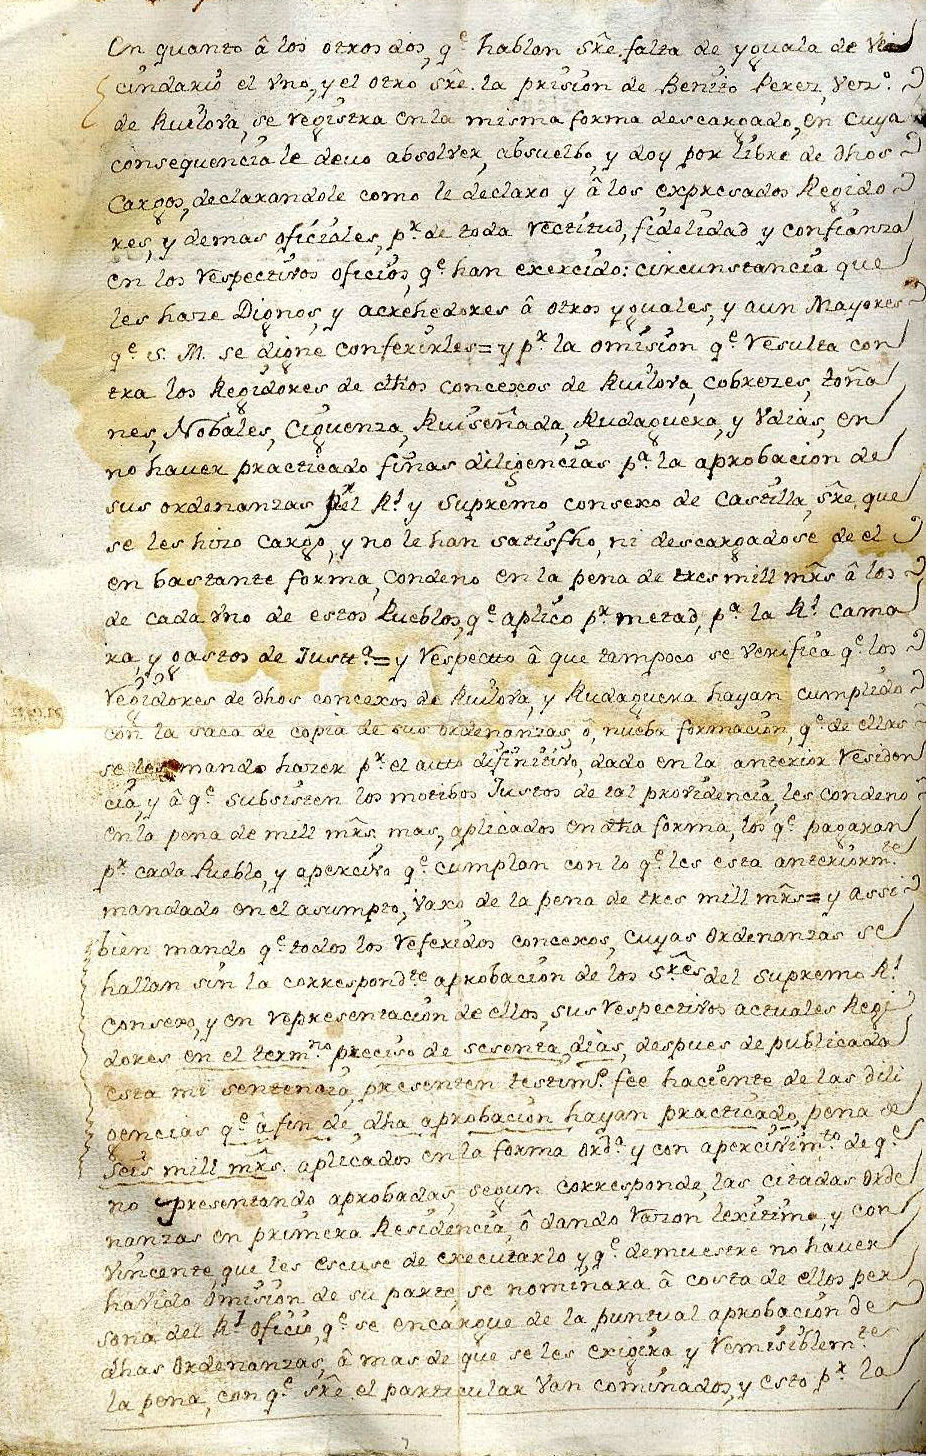 En quanto â los otros dos, q.e hablan sre. falta de yguala de Ve
cindario el vno, y el otro sre. la prision de Benito Perez, vez.o
de Ruilova, se registra en la misma forma descargado, en cuya
consequencia le devo absolver, absuelbo, y doy por libre de dhos
cargos, declarandole como le declaro y â los expresados Regido
res, y demas oficiales, p.r de toda rectitud, fidelidad y confianza
en los respectivos oficios, q.e han exercido: circunstancia que
les haze Dignos, y acrehedores â otros yguales, y aun Mayores
q.e S. M. se digne conferirles = y p.r la omision q.e resulta con
tra los Regidores de dhos concexos de Ruilova, cobrezes, toña
nes, Nobales, Ciguenza, Ruiseñada, Rudaguera, y Vdias, en
no haver practicado finas diligencias p.a la aprobacion de
sus ordenanzas pr el R.l y Supremo consexo de Castilla, sre. que
se les hizo cargo, y no le han satisfho, ni descargadose de el
en bastante forma, condeno en la pena de tres mill mrs â los
de cada vno de estos Pueblos, q.e aplico p.r metad, p.a la R.l Cama
ra, y gastos de Justt.a = y respecto â que tampoco se verifica q.e los
regidores de dhos concexos de Ruilova, y Rudaguera hayan cumplido
con la saca de copia de sus ordenanzas, ô, nueba formacion, q.e de ellas
se les mando hazer p.r el auto difinitivo, dado en la anterior residen
cia, y â q.e subsisten los motibos Justos de tal providencia, les condeno
en la pena de mill mrs, mas, aplicados en dha forma, los q.e pagaran
p.r cada Pueblo, y apercivo q.e cumplan con lo q.e les esta anteriorm.te
mandado en el asumpto, vaxo de la pena de tres mill mrs = y assi
bien mando q.e todos los referidos concexos, cuyas ordenanzas se
hallan sin la correspond.te aprobacion de los Sres del Supremo R.l
Consexo, y en representacion de ellos, sus respectivos actuales Regi
dores en el term.no preciso de sesenta dias, despues de publicada
esta mi sentencia, presenten testim.o fee haciente de las dili
gencias q.e â fin de dha aprobacion hayan practicado, pena de
seis mill mrs. aplicados en la forma ord.a y con apercivim.to de q.e
no presentando aprobadas, segun corresponde, las citadas orde
nanzas en primera Residencia, ô dando razon lexitima, y con
vincente, que les escuse de executarlo y q.e demuestre no haver
havido omision de su parte, se nominara â costa de ellos per
sona del R.l oficio, q.e se encargue de la puntual aprobacion de
dhas ordenanzas, â mas de que se les exigira y remisiblem.te
la pena, con q.e sre el particular van cominados, y esto p.r la